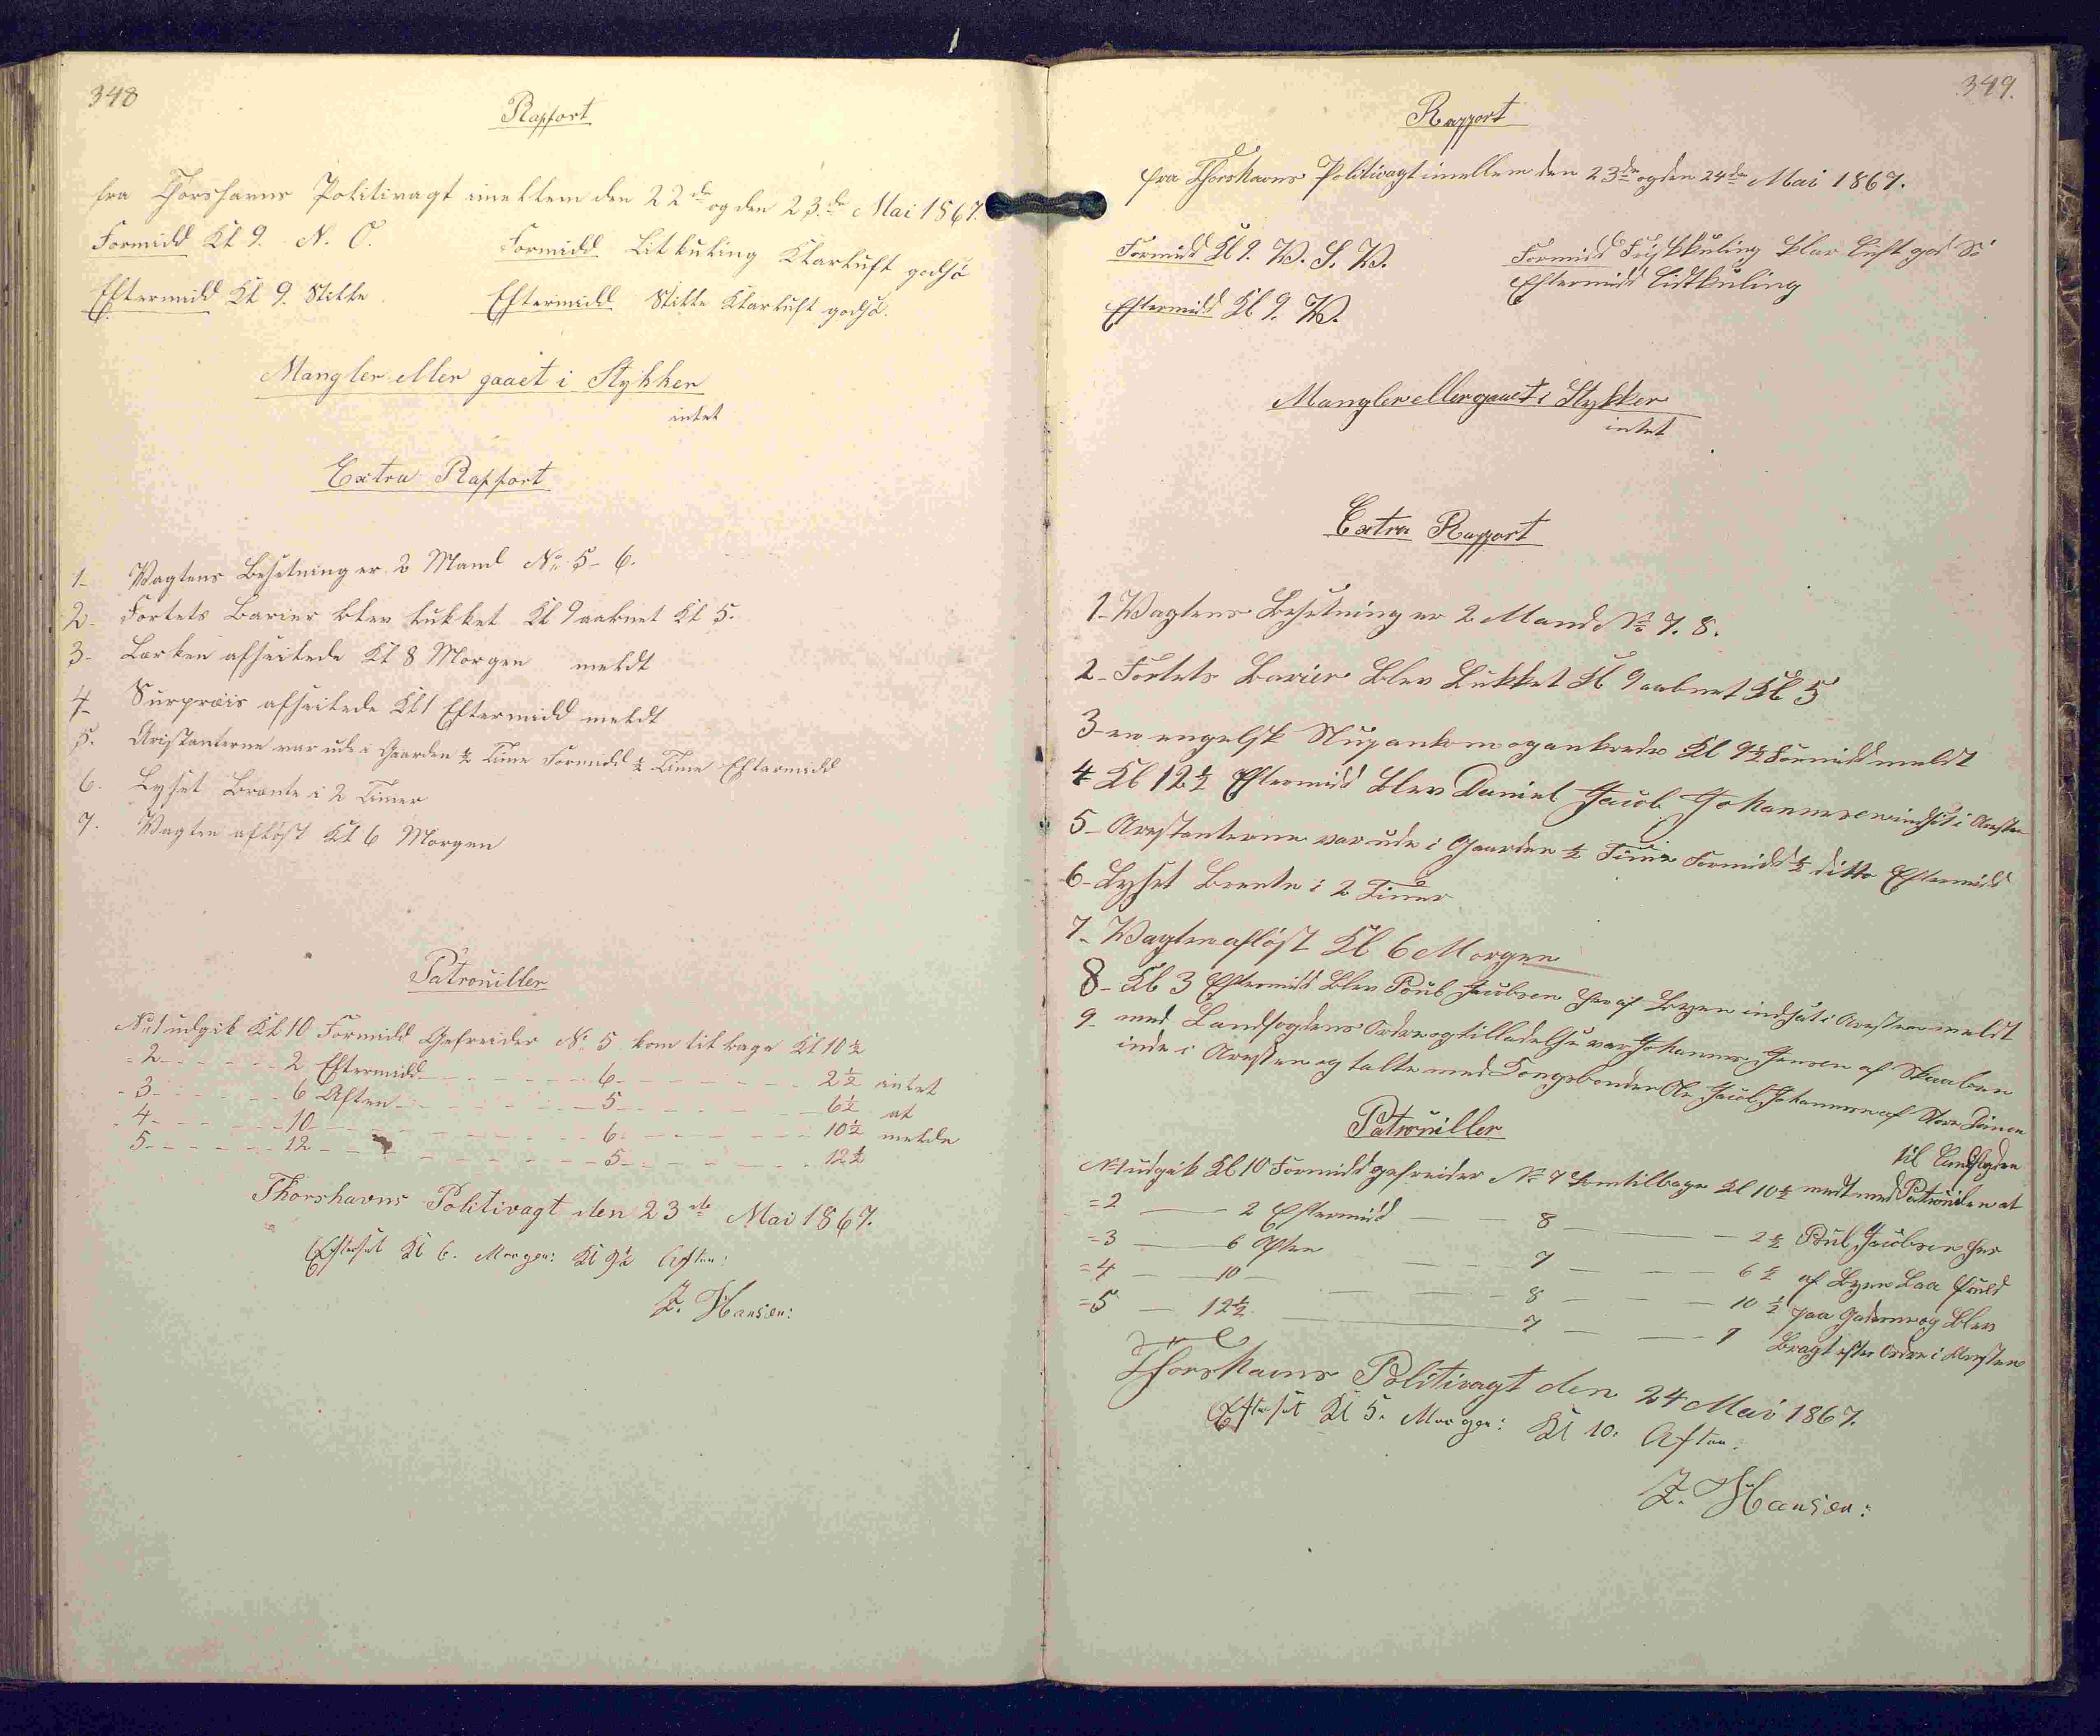 348
Rapport
fra Thorshavns Politivagt imellem den 22de og den 23de Mai 1867.
Formidd Kl 9. N. O. Formidd Litkuling Klarluft godsö
Eftermidd Kl 9. Stille Eftermidd Stille Klarluft godsö.
Mangler eller gaaet i Stykker
intet
Extra Rapport
1- Vagtens Besetning er 2 Mand No 5-6.
2- Fortets Barier blev lukket Kl 9 aabnet Kl 5.
3- Lærken afseilede Kl 8 Morgen meldt
4- Surpræis afseilede Kl 1 Eftermidd meldt
5. Aristanterne var ude i Gaarden ½ Time Formidd ½ Time Eftermidd
6. Lyset Brænte i 2 Timer
7. Vagten aflöst Kl 6 Morgen
Patrouiller
No 1 udgik Kl 10 Formidd Gefreider No 5 kom tilbage Kl 10½
- 2 - - - - - 2 Eftermidd - - - - - 6 - - - - - 2½ intet
- 3 - - - - - 6 Aften - - - - - 5 - - - - - 6½ at
- 4 - - - - - 10 - - - - - 6 - - - - - 10½ melde
5 - - - - - 12 - - - - - 5 - - - - - 12½
Thorshavns Politivagt den 23de Mai 1867.
Efterset Kl 6. Morgen: Kl 9½ Aften:
Z. Hansen:
349.
Rapport
fra Thorshavns Politivagt imellem den 23de og den 24de Mai 1867.
Formidd Kl 9. W. S. W. Formidd Friskkuling klar Luft god Sö
Eftermidd Kl 9. W. Eftermidd Lidtkuling
Mangler eller gaaet i Stykker
intet
Extra Rapport
1- Wagtens Besetning er 2 Mand No 7. 8.
2- Fortets Barier Blev Lukket Kl 9 aabnet Kl 5
3- en engelsk Slup ankom og ankrede Kl 9½ Formidd meldt
4 Kl 12½ Eftermidd Blev Daniel Jacob Johannesen indsat i Aresten
5- Arestanterne var ude i Gaarden ½ Time Formidd ½ ditto Eftermidd
6- Lyset Brente i 2 Timer
7- Wagten aflöst Kl 6 Morgen
8- Kl 3 Eftermidd Blev Poul Jacobsen her af Byen indsat i Aresten meldt
9- med Landfogdens Ordre og tilladelse var Johannes Jensen af Skaalen
inde i Aresten og talte med Kongsbonden Ole Jacob Johannesen af Store Dimon
Patrouiller
til Landfogden
No 1 udgik Kl 10 Formidd gefreider No 7 kom tilbage Kl 10½ medt med Patrouilen at
=2 — 2 Eftermidd — 8 — 2½ Poul Jacobsen her
=3 — 6 Aften — 7 — 6½ af Byen Laa fuld
=4 — 10 — 8 — 10½ paa Gaden og Blev
=5 — 12½ — 7 — 1 Bragt efter Ordre i Aresten
Thorshavns Politivagt den 24 Mai 1867.
Efterset Kl 5. Morgen: Kl 10. Aften:
Z. Hansen: